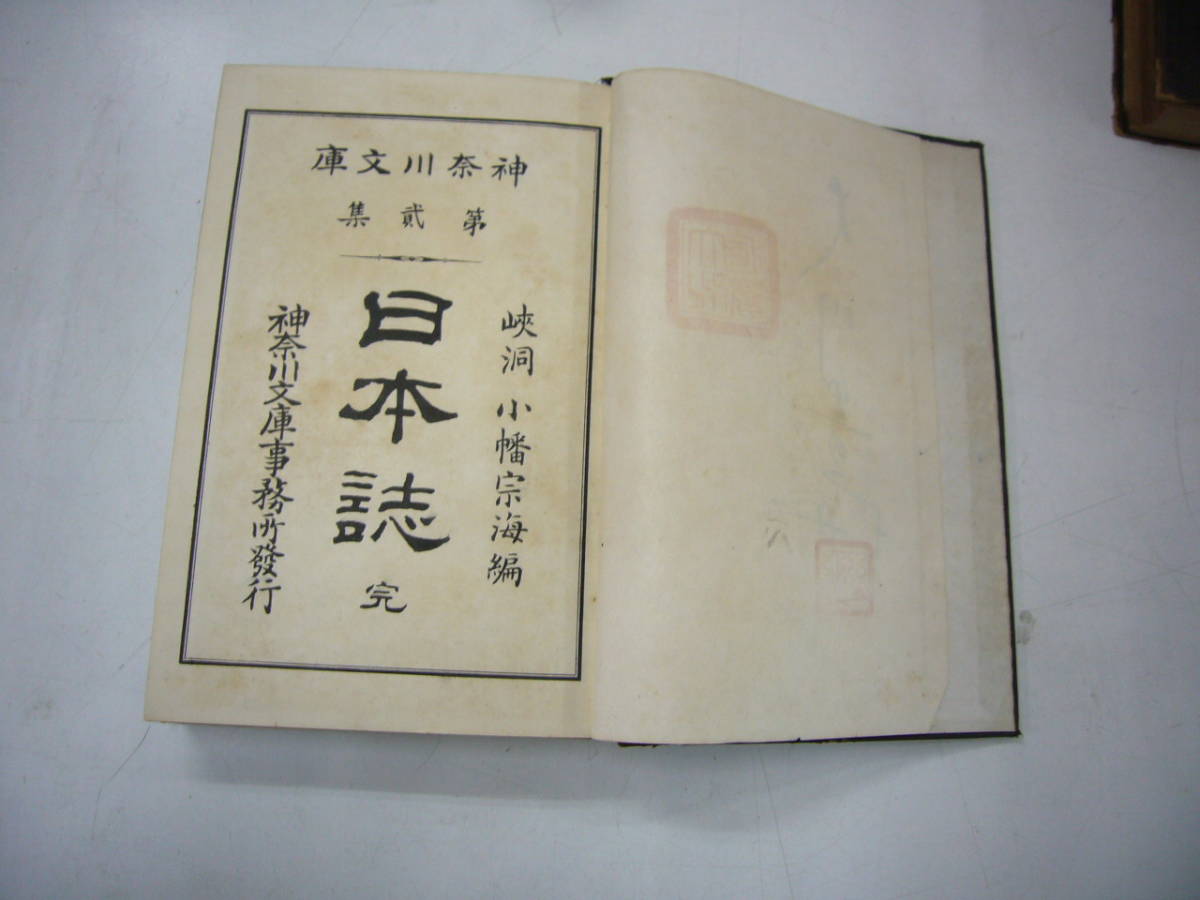 神奈川文庫
第貳集
峽洞 小幡宗海編
日本誌 完
神奈川文庫事務所發行